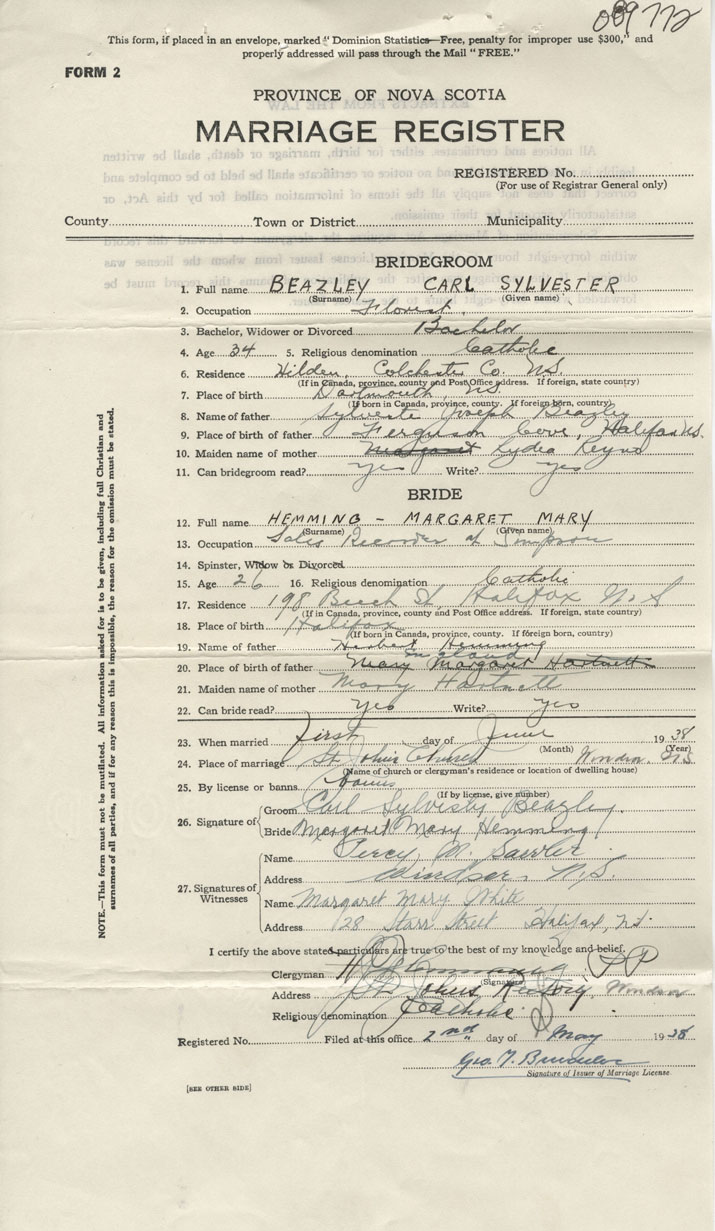 009772
This form, if placed in an envelope, marked "Dominion Statistics—Free, penalty for improper use $300," and
properly addressed will pass through the Mail "FREE."
FORM 2
PROVINCE OF NOVA SCOTIA
MARRIAGE REGISTER
REGISTERED No.
(For use of Registrar General only)
County Town or District Municipality
BRIDEGROOM
1. Full name BEAZLEY CARL SYLVESTER
(Surname) (Given name)
2. Occupation Florist
3. Bachelor, Widower or Divorced Bachelor
4. Age 34 5. Religious denomination Catholic
6. Residence Hilden, Colchester Co. N.S.
(If in Canada, province, county and Post Office address. If foreign, state country)
7. Place of birth Dartmouth N.S.
(If born in Canada, province, county. If foreign born, country)
8. Name of father Sylveste Joseph Beazley
9. Place of birth of father Ferguson Cove, Halifax N.S.
10. Maiden name of mother Margaret Lydia
11. Can bridegroom read? yes Write? yes
BRIDE
12. Full name HEMMING - MARGARET MARY
(Surname) (Given name)
13. Occupation Sales Recorder at Simpson
14. Spinster, Widow or Divorced
15. Age 26 16. Religious denomination Catholic
17. Residence 198 Beech St, Halifax N.S
(If in Canada, province, county and Post Office address. If foreign, state country)
18. Place of birth Halifax
(If born in Canada, province, county. If foreign born, country)
19. Name of father Herbert Hemming
20. Place of birth of father England Mary Margaret Hartnett
21. Maiden name of mother Mary Hartnett
22. Can bride read? yes Write? yes
23. When married first day of June 1938
(Month) (Year)
24. Place of marriage St John's Church Windsor N.S
(Name of church or clergyman's residence or location of dwelling house)
25. By license or banns Banns
(If by license, give number)
26. Signature of Groom Carl Sylvester Beazley
Bride Margaret Mary Hemming
27. Signatures of Witnesses
Name Percy M. Sawler
Address Windsor, N.S.
Name Margaret Mary White
Address 128 Starr Street Halifax, N.S.
I certify the above stated particulars are true to the best of my knowledge and belief.
Clergyman P P
(Signature)
Address St Johns Rectory, Windsor
Religious denomination Catholic
Registered No. Filed at this office 2nd day of May 1938
Geo. T.
Signature of Issuer of Marriage License
[SEE OTHER SIDE]
NOTE.—This form must not be mutilated. All information asked for is to be given, including full Christian and
surnames of all parties, and if for any reason this is impossible, the reason for the omission must be stated.